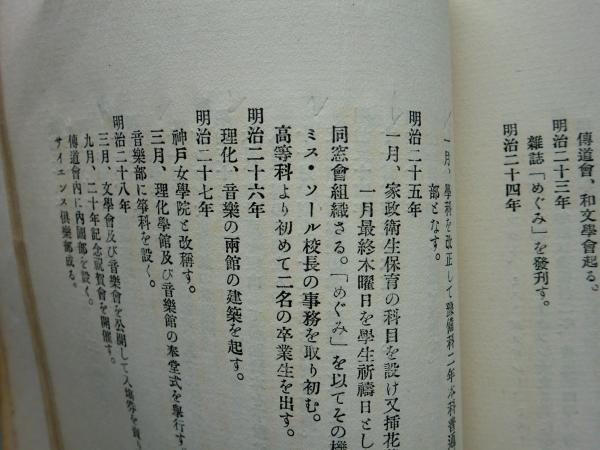 傳道會、和文學會起る。
明治二十三年
雜誌「めぐみ」を發刊す。
明治二十四年
一月、學科を改正して豫備科二年本科普通
部となす。
明治二十五年
一月、家政衛生保育の科目を設け又挿花
一月最終木曜日を學生祈禱日とし
同窓會組織さる。「めぐみ」を以てその機
ミス・ソール校長の事務を取り初む。
高等科より初めて二名の卒業生を出す。
明治二十六年
理化、音樂の兩館の建築を起す。
明治二十七年
神戸女學院と改稱す。
三月、理化學館及び音樂館の奉堂式を擧行す
音樂部に箏科を設く。
明治二十八年
三月、文學會及び音樂會を公開して入場券を賣
九月、二十年記念祝賀會を開催す。
傳道會内に内國部を設く。
サイエンス俱樂部成る。